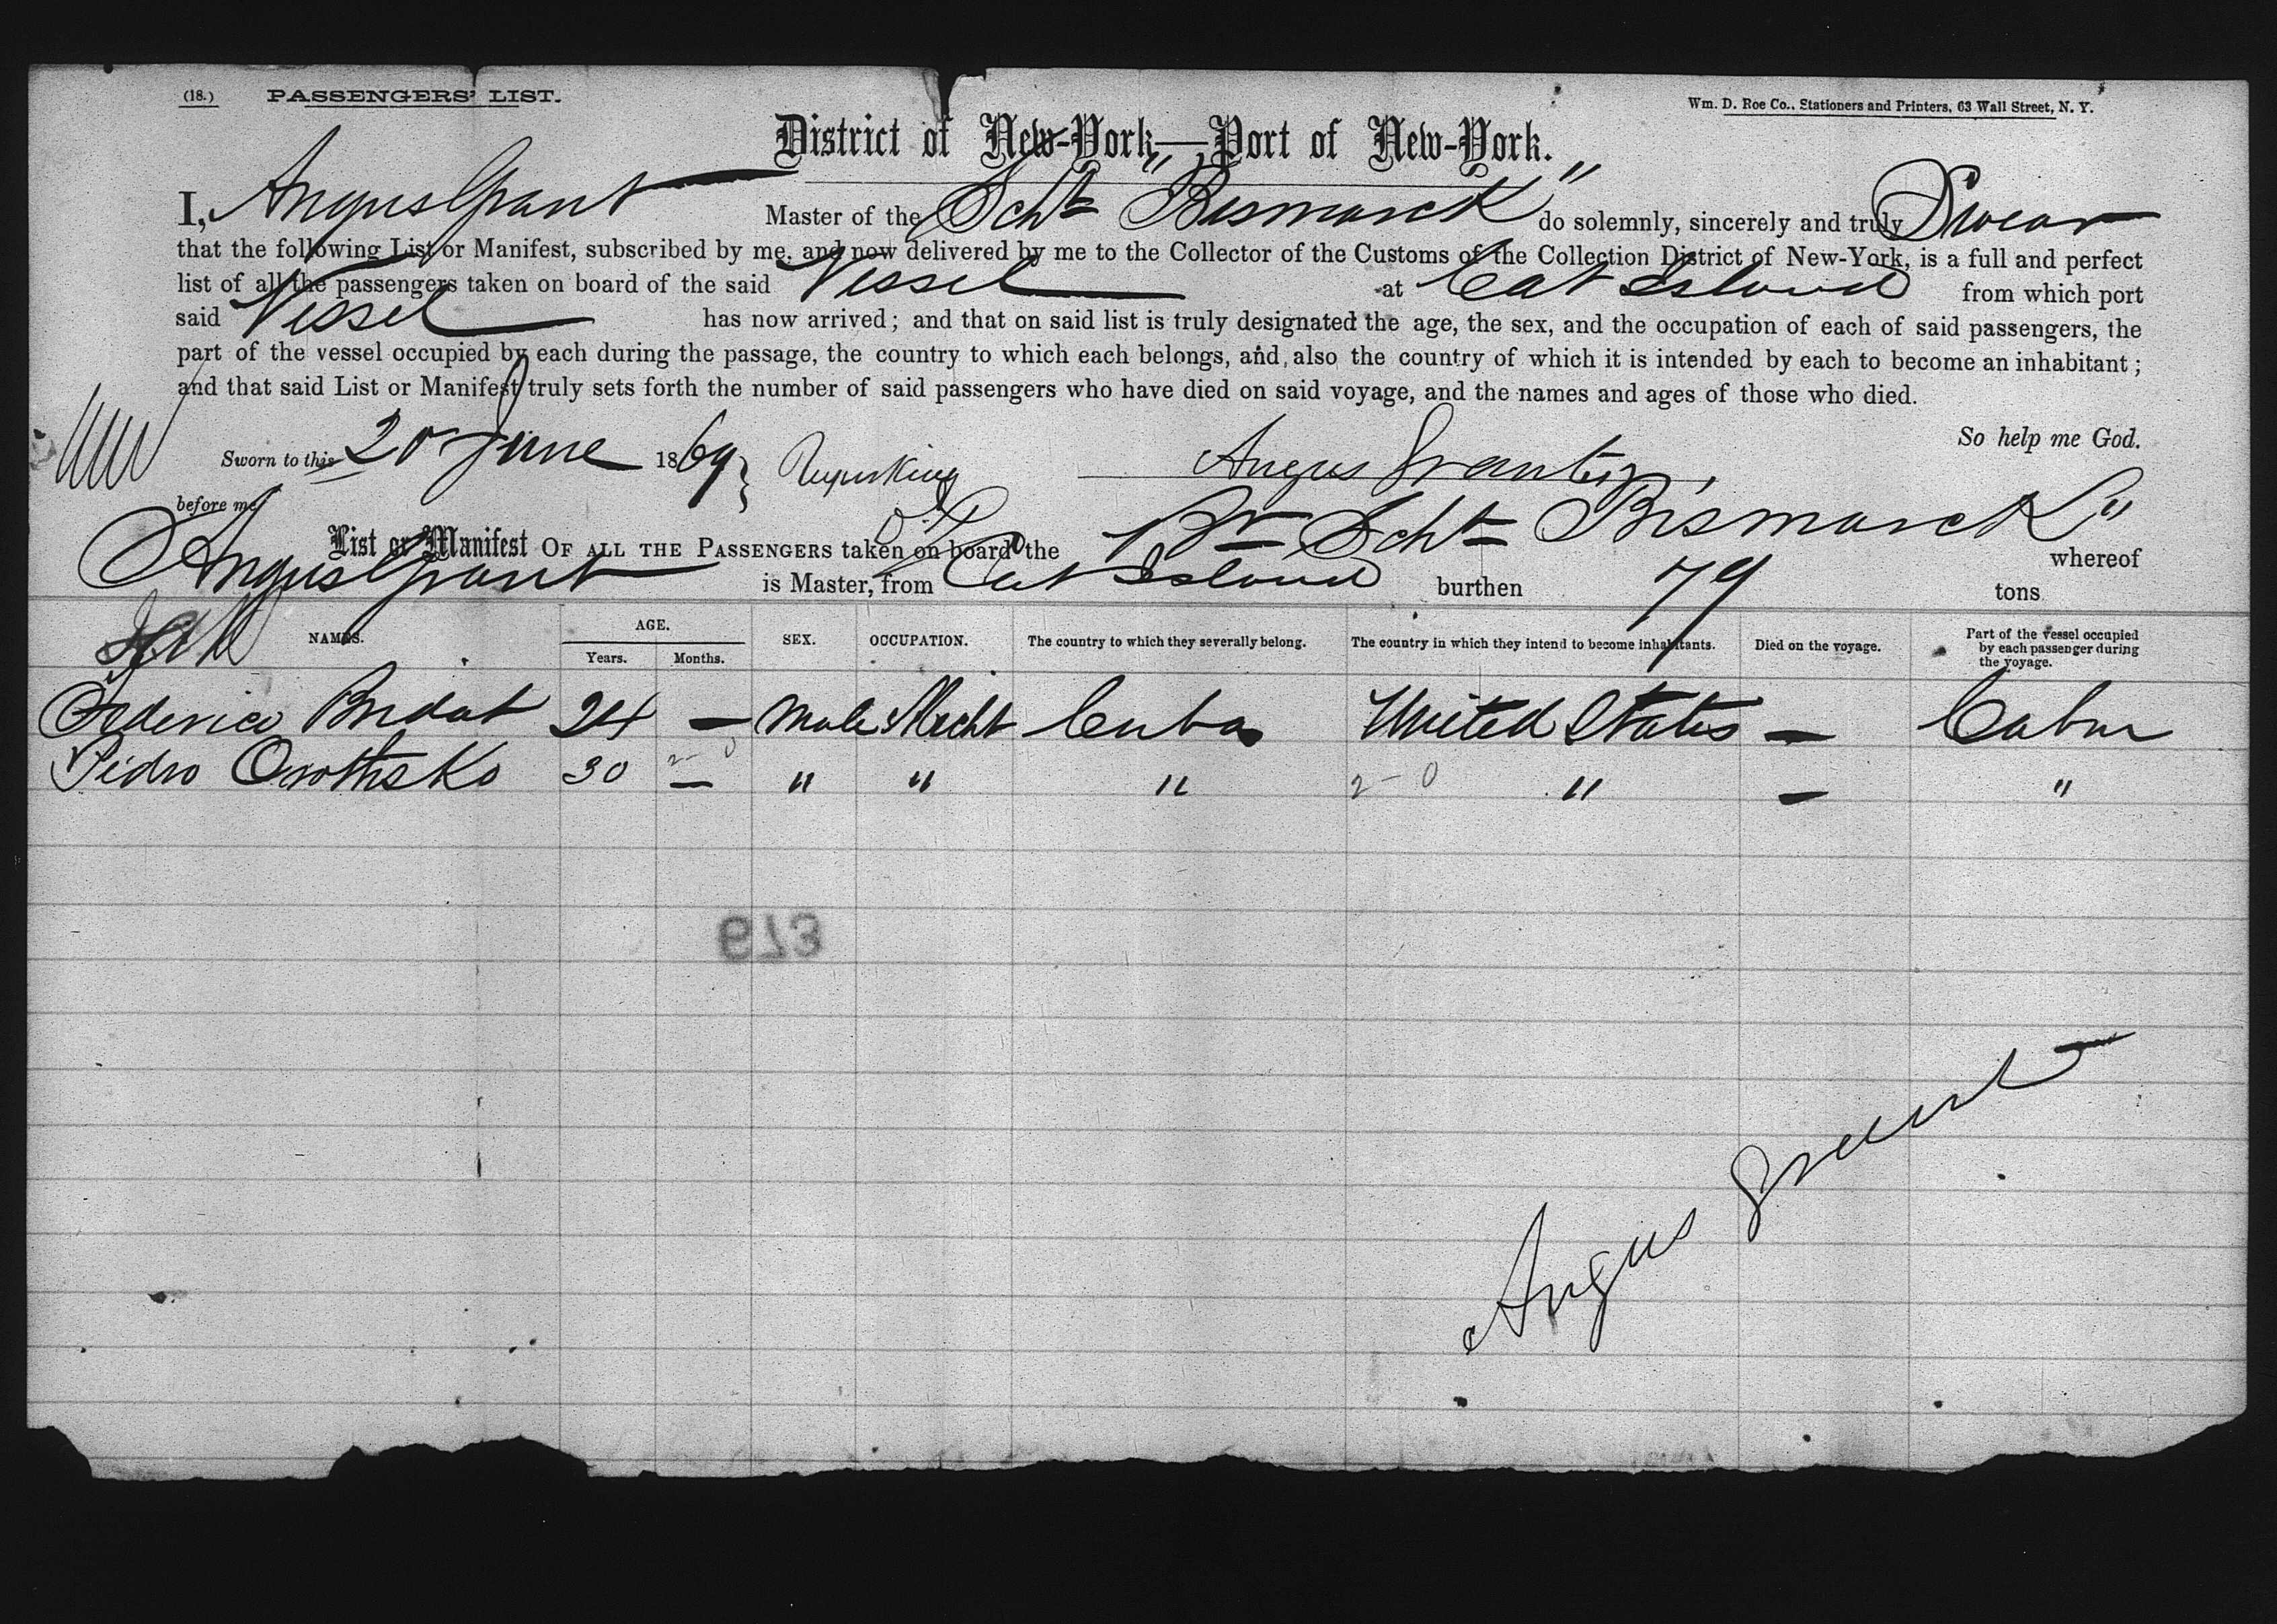 (18.) PASSENGERS' LIST.
Wm. D. Roe Co., Stationers and Printers, 63 Wall Street, N. Y.
District of New-York—Port of New-York.
I, Angus Grant Master of the Schr "Bismarck" do solemnly, sincerely and truly Swear
that the following List or Manifest, subscribed by me, and now delivered by me to the Collector of the Customs of the Collection District of New-York, is a full and perfect
list of all the passengers taken on board of the said Vessel at Cat Island from which port
said Vessel has now arrived; and that on said list is truly designated the age, the sex, and the occupation of each of said passengers, the
part of the vessel occupied by each during the passage, the country to which each belongs, and also the country of which it is intended by each to become an inhabitant;
and that said List or Manifest truly sets forth the number of said passengers who have died on said voyage, and the names and ages of those who died.
So help me God.
Sworn to this 20 June 1869 } Angus Grant
before me
List or Manifest OF ALL THE PASSENGERS taken on board the Br Schr Bismarck" whereof
Angus Grant is Master, from Cat Island burthen 79 tons
NAMES. AGE. Years. Months. SEX. OCCUPATION. The country to which they severally belong. The country in which they intend to become inhabitants. Died on the voyage. Part of the vessel occupied by each passenger during the voyage.
24 — Male Mcht Cuba United States — Cabin
Pedro 30 — " " " " — "
2-0 2-0
673
Angus Grant